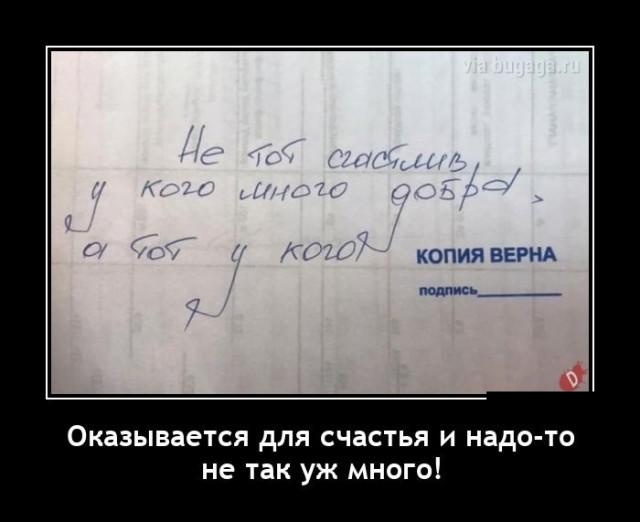 via bugaga.ru
Не тот счастлив,
у кого много добра,
а тот у кого
КОПИЯ ВЕРНА
подпись
Оказывается для счастья и надо-то
не так уж много!